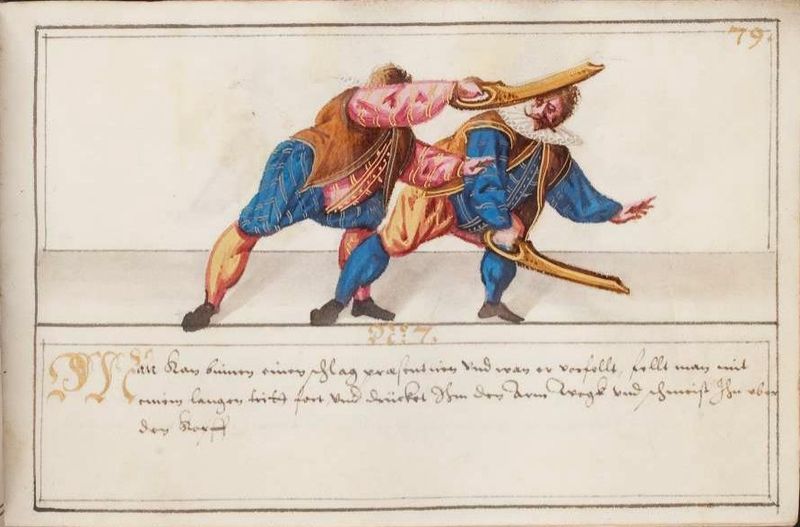 79.
No 7.
Man Kan binnen einen schlag præsentiren Und wan er verfellt, fellt man mit
einem langen tritt fort und drücket Ihm den Arm Wegk und schmeist Ihn uber
den Kopff